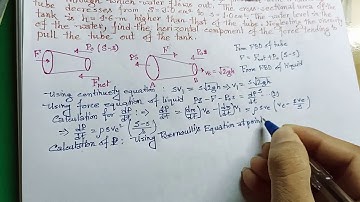 through which water flows out. The cross-sectional area of the
tube decreases from S = 3.0 cm² to s = 1.0 cm². The water level in
is h = 4.6 m higher than that of the tube. Neglecting the viscosity
of the water, find the horizontal component of the force tending to
pull the tube out of the tank.
From FBD of tube
F = Fnet + P₀(S-s)
From FBD of liquid
F P₀(S-s)
Fnet
PS F P₀s
ve = √2gh
-Using continuity equation : SV₁ = s√2gh ⇒ V₁ = s√2gh/S
-Using force equation of liquid PS - F - P₀s = dP/dt -(1)
Calculation for dP/dt :⇒ dP/dt = (dm/dt)ve - (dm/dt)V₁ = ρsve(ve - sve/S)
⇒ dP/dt = ρsve²(S-s/S)
Calculation of P: -Using Bernoulli's Equation at point